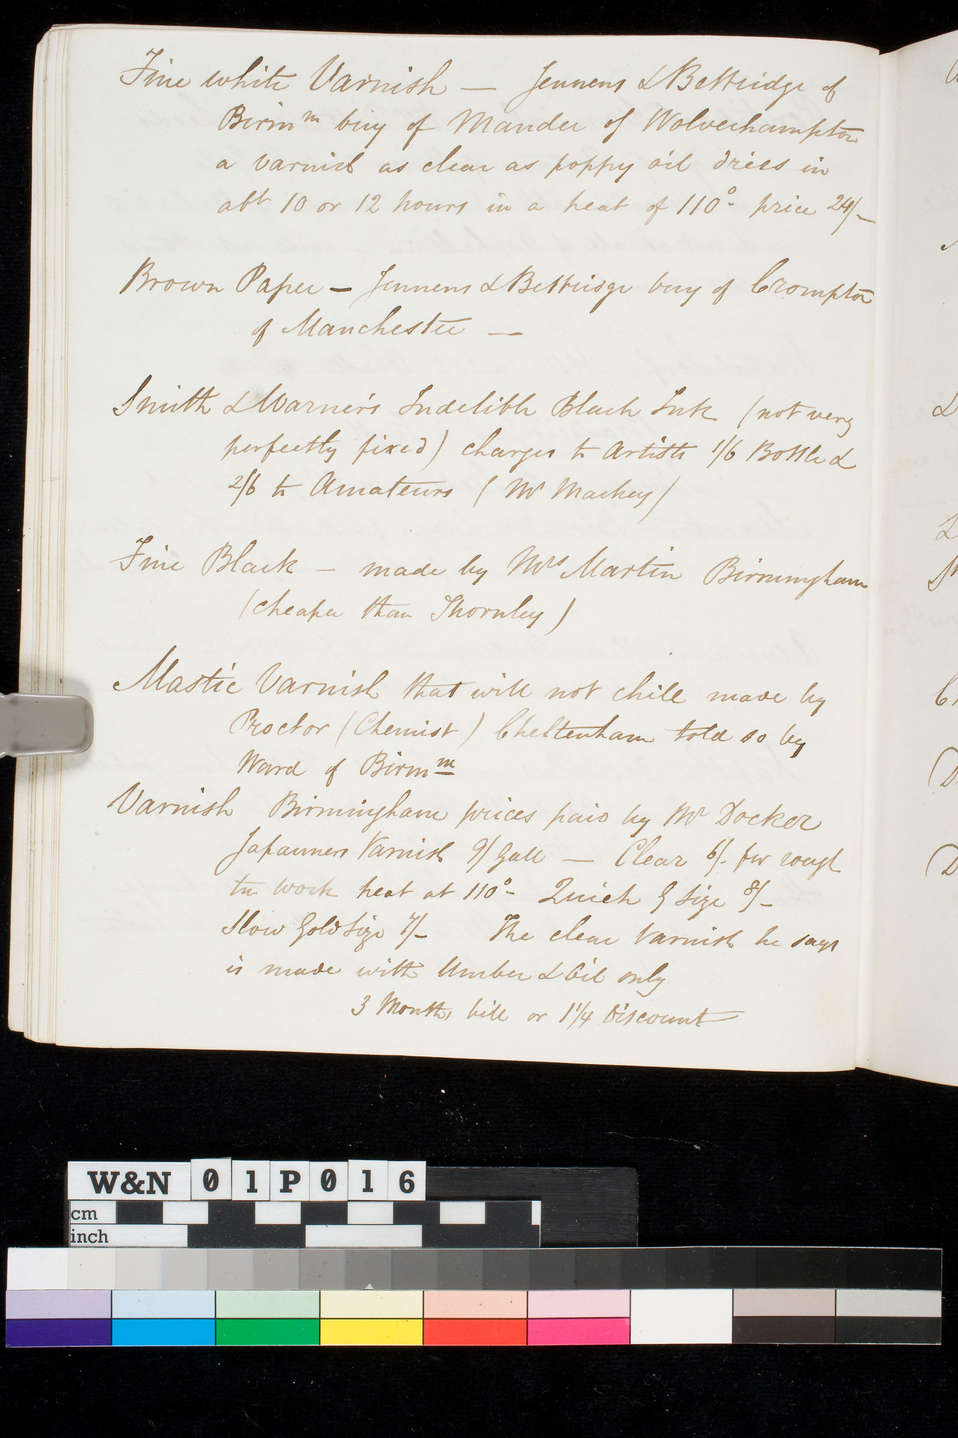 Fine white Varnish — Jennens & Bettridge of
Birmm buy of Mander of Wolverhampton
a varnish as clear as poppy oil dries in
abt 10 or 12 hours in a heat of 110° price 24/-
Brown Paper — Jennens & Bettridge buy of Crompton
of Manchester —
Smith & Warner's Indelible Black Ink (not very
perfectly fixed) charges to Artists 1/6 Bottle &
2/6 to Amateurs (Mr Mackey)
Fine Black — made by Mrs Martin Birmingham
(cheaper than Thornley)
Mastic Varnish that will not chill made by
Proctor (Chemist) Cheltenham told so by
Ward of Birmm
Varnish Birmingham prices paid by Mr Docker
Japanners Varnish 9/ Gall — Clear 6/- for rough
tin work heat at 110°- Quick G Size 8/-
Slow Gold Size 7/- The clear Varnish he says
is made with Umber & Oil only
3 Months bill or 1¼ Discount
W&N 01P016
cm
inch